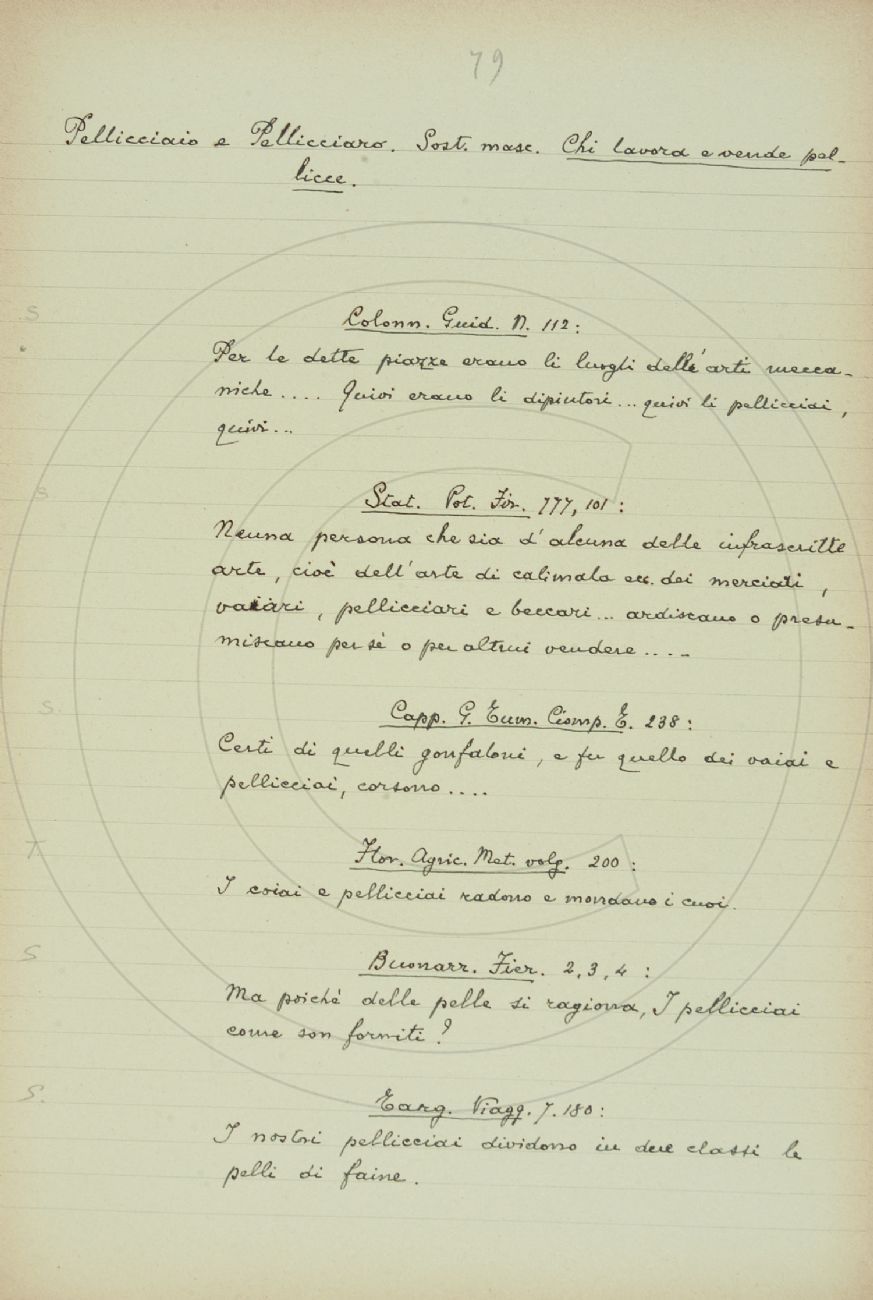 79
Pellicciaio e Pellicciaro. Sost. masc. Chi lavora e vende pel-
licce.
S
Colonn. Guid. N. 112:
Per le dette piazze erano li luogli dell'arti mecca-
niche .... Quivi erano li dipintori... quivi li pellicciai,
quivi...
S
Stat. Pot. Fir. 777, 101:
Neuna persona che sia d'alcuna delle infrascritte
arte, cioè dell'arte di calimala ec. dei merciai,
vaiari, pellicciari e beccari... ardiscano o presu-
miscano per sè o per altrui vendere ....
S.
Capp. G. Tum. Ciomp. E. 238:
Certi di quelli gonfaloni, e fu quello dei vaiai e
pellicciai, corsono ....
T.
Flor. Agric. Met. volg. 200:
I coiai e pellicciai radono e mondano i cuoi.
S
Buonarr. Fier. 2, 3, 4:
Ma poichè delle pelle si ragiona, I pellicciai
come son forniti?
S.
Targ. Viagg. 7. 180:
I nostri pellicciai dividono in due classi le
pelli di faine.